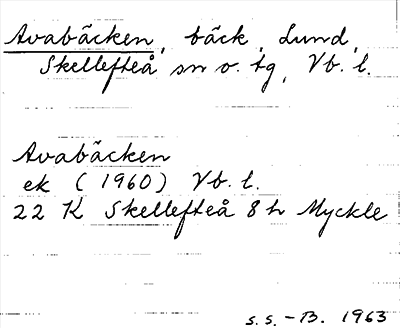 Avabäcken, bäck, Lund,
Skellefteå sn o. tg, Vb. l.
Avabäcken
ek (1960) Vb. l.
22 K Skellefteå 8 h Myckle
s.s. - B. 1963